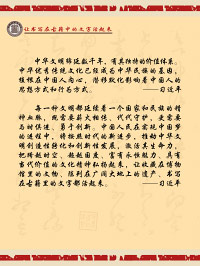 让书写在古籍中的文字活起来
中华文明绵延数千年，有其独特的价值体系。
中华优秀传统文化已经成为中华民族的基因，
植根在中国人内心，潜移默化影响着中国人的
思想方式和行为方式。
——习近平
每一种文明都延续着一个国家和民族的精
神血脉，既需要薪火相传、代代守护，更需要
与时俱进、勇于创新。中国人民在实现中国梦
的进程中，将按照时代的新进步，推动中华文
明创造性转化和创新性发展，激活其生命力，
把跨越时空、超越国度、富有永恒魅力、具有
当代价值的文化精神弘扬起来，让收藏在博物
馆里的文物、陈列在广阔大地上的遗产、书写
在古籍里的文字都活起来。
——习近平